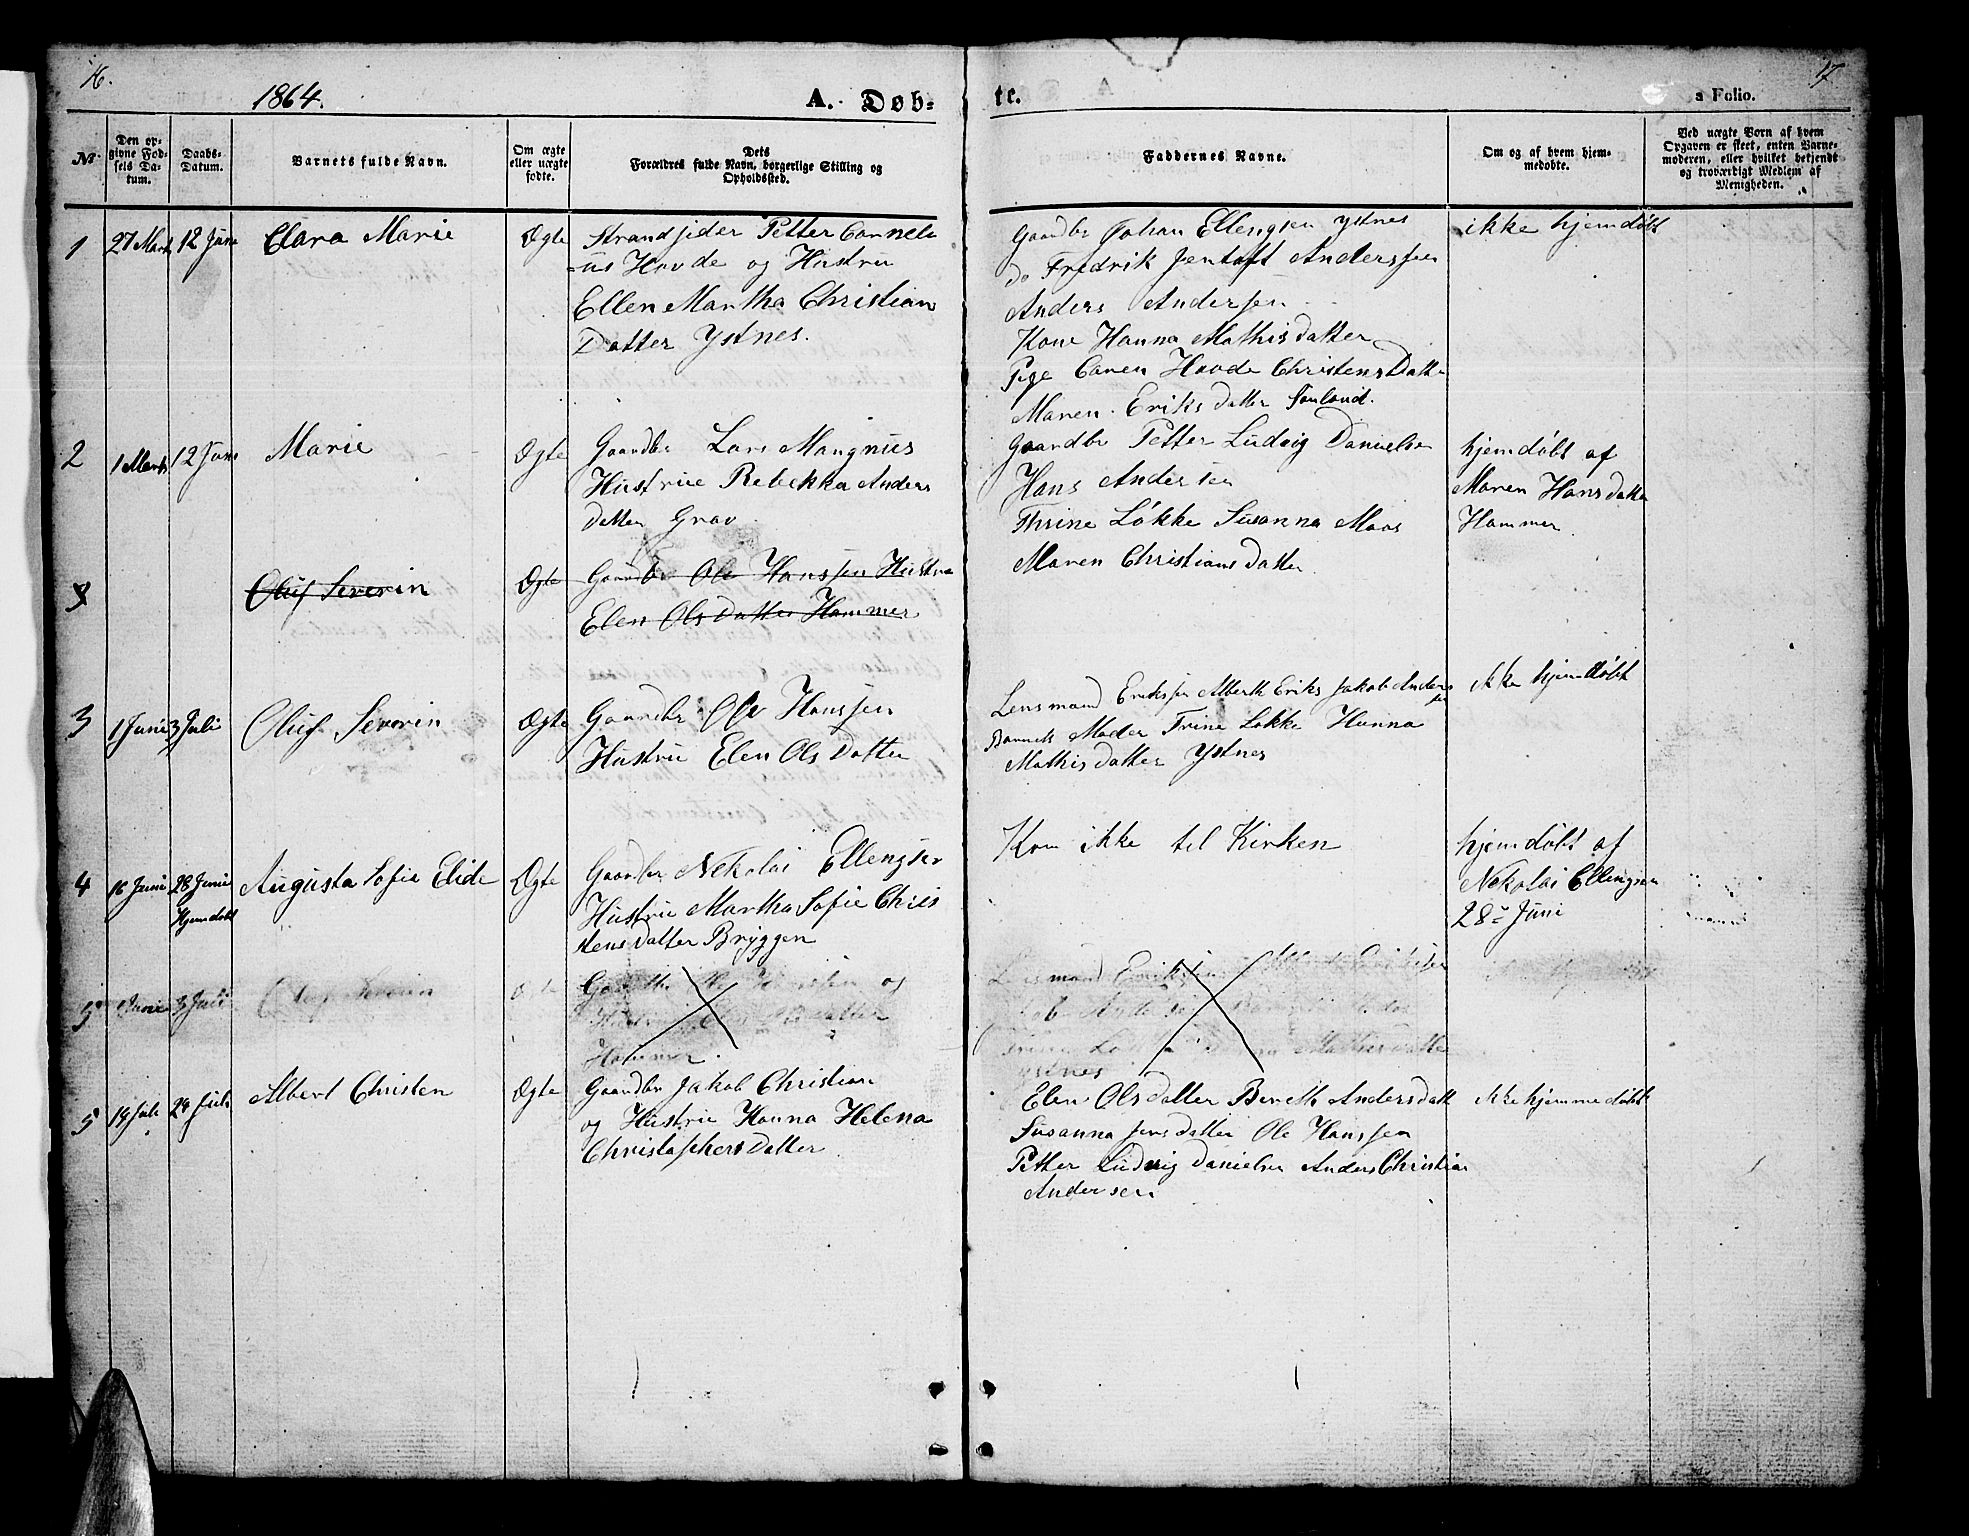 16.
1864.
A. Døb-
te.
a Folio.
17
No.
Den op-
givne Fød-
sels Da-
tum.
Daabs-
Datum.
Barnets fulde Navn.
Om ægte
eller uægte
fødte.
Dets
Forældres fulde Navn, borgerlige Stilling og
Opholdssted.
Faddernes Navne.
Om og af hvem hjem-
medøbte.
Ved uægte Børn af hvem
Opgaven er skeet, enten Barne-
moderen, eller hvilket bekjendt
og troværdigt Medlem af
Menigheden.
1
27 Marts
12 Juni
Clara Marie
Ægte
Strandsider Petter Corneli
-us Hovde og Hustru
Ellen Martha Christian
Datter Ystnes.
Gaardbr Johan Ellengsen Ystnes
do Fredrik Jentoft Anderssen
Anders Andersen
Kone Hanna Mathisdatter
Pige Caren Hovde ChristensDatt
Maren Eriksdatter
ikke hjemdøbt
2
1 Marts
12 Juni
Marie
Ægte
Gaardbr Lars Mangnus
Hustrue Rebekka Anders
datter Grav
Gaardbr Petter Ludvig Danielsen
Hans Andersen
Thrine Løkke Susanna Moos
Maren Christiansdatter
hjemdøbt af
Maren Hansdatter
Hammer
3
Oluf Severin
Ægte
Gaardbr Ole Hanssen Hustru
Elen OlsDatter Hammer
3
1 Juni
3 Juli
Oluf Severin
Ægte
Gaardbr Ole Hanssen
Hustru Elen OlsDatter
Lensmand Eriksen Alberth Eriks Jakob Anders
sen
Barnets Moder Trine Løkke Hanna
Mathisdatter Ystnes
ikke hjemdøbt
4
16 Juni
28 Juni
Hjemdøbt
Augusta Sofie Elide
Ægte
Gaardbr Nekolai Ellengsen
Hustrue Martha Sofie Chris
tensDatter Bryggen
Kom ikke til Kirken
hjemdøbt af
Nekolai Ellengsen
28de Juni
5
Juni
3 Juli
Oluf Severin
og
Hustru
Hammer.
Lensmand Eriksen
Trine
Ystnes
5
19 Juli
24 Juli
Albert Christen
Ægte
Gaardbr Jakob Christian
og Hustrue Hanna Helena
ChristophersDatter
Elen OlsDatter Bereth Andersdatt
Susanna Jensdatter Ole Hanssen
Petter Ludvig Danielsen Anders Christian
Andersen
ikke hjemmedøbt